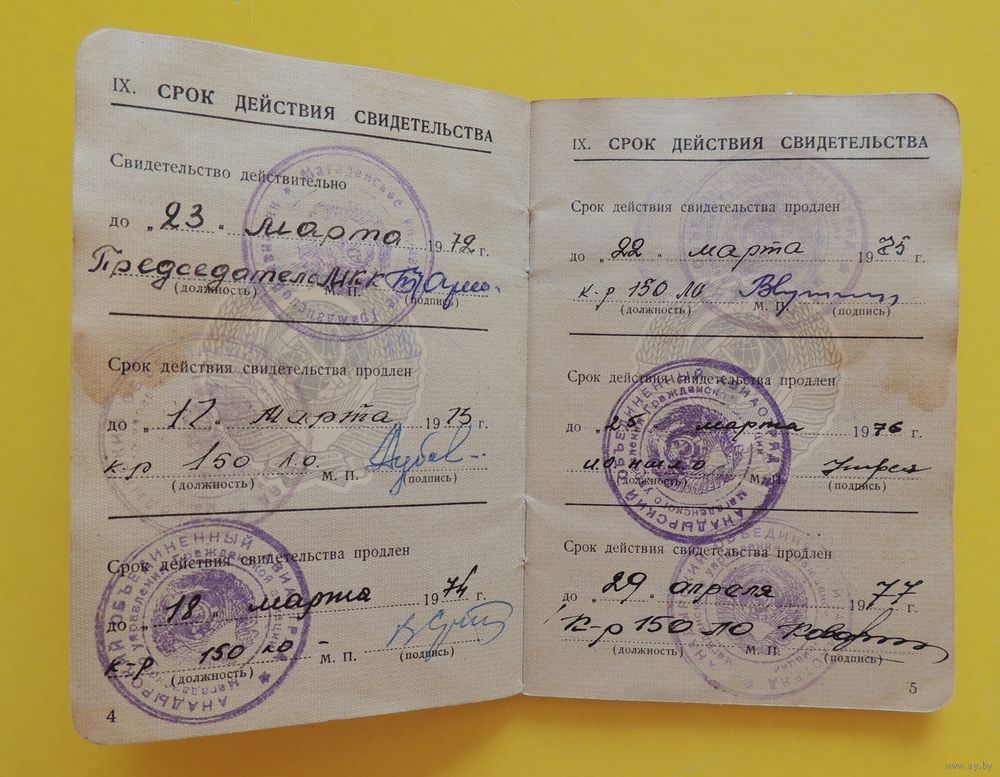 IX. СРОК ДЕЙСТВИЯ СВИДЕТЕЛЬСТВА
Свидетельство действительно
до „23" марта 1972 г.
Председатель МКК
(должность) М. П. (подпись)
Срок действия свидетельства продлен
до „12" марта 1973 г.
к-р 150 л.о.
(должность) М. П. (подпись)
Срок действия свидетельства продлен
до „18" марта 1974 г.
к-р 150 ло
(должность) М. П. (подпись)
АНАДЫРСКИЙ ОБЪЕДИНЕННЫЙ АВИАОТРЯД
Магаданского управления Гражданской авиации
4
IX. СРОК ДЕЙСТВИЯ СВИДЕТЕЛЬСТВА
Срок действия свидетельства продлен
до „22" марта 1975 г.
к-р 150 ЛО
(должность) М. П. (подпись)
Срок действия свидетельства продлен
до „25" марта 1976 г.
(должность) М. П. (подпись)
АНАДЫРСКИЙ ОБЪЕДИНЕННЫЙ АВИАОТРЯД
Магаданского управления Гражданской авиации
Срок действия свидетельства продлен
до „29" апреля 1977 г.
К-р 150 ЛО
(должность) М. П. (подпись)
5
www.ay.by